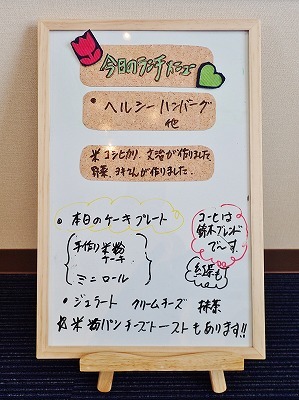 今日のランチメニュー
• ヘルシーハンバーグ
他
米 コシヒカリ、文治が作りました
野菜、ヨキさんが作りました.
• 本日のケーキプレート
手作り米粉
ケーキ
ミニロール
コーヒーは
鈴木ブレンド
でーす.
紅茶も
• ジェラート クリームチーズ 抹茶
米粉パンチーズトーストもあります!!